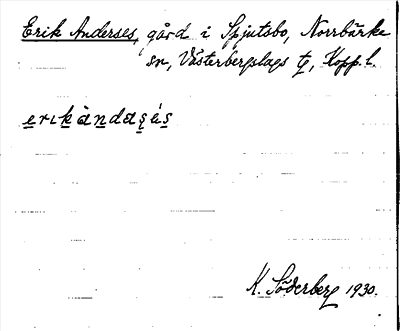 Erik Anderses, gård i Spjutsbo, Norrbärke
sn, Västerbergslags tg, Kopp. l.
erikàndaṣés
K. Söderberg 1930.